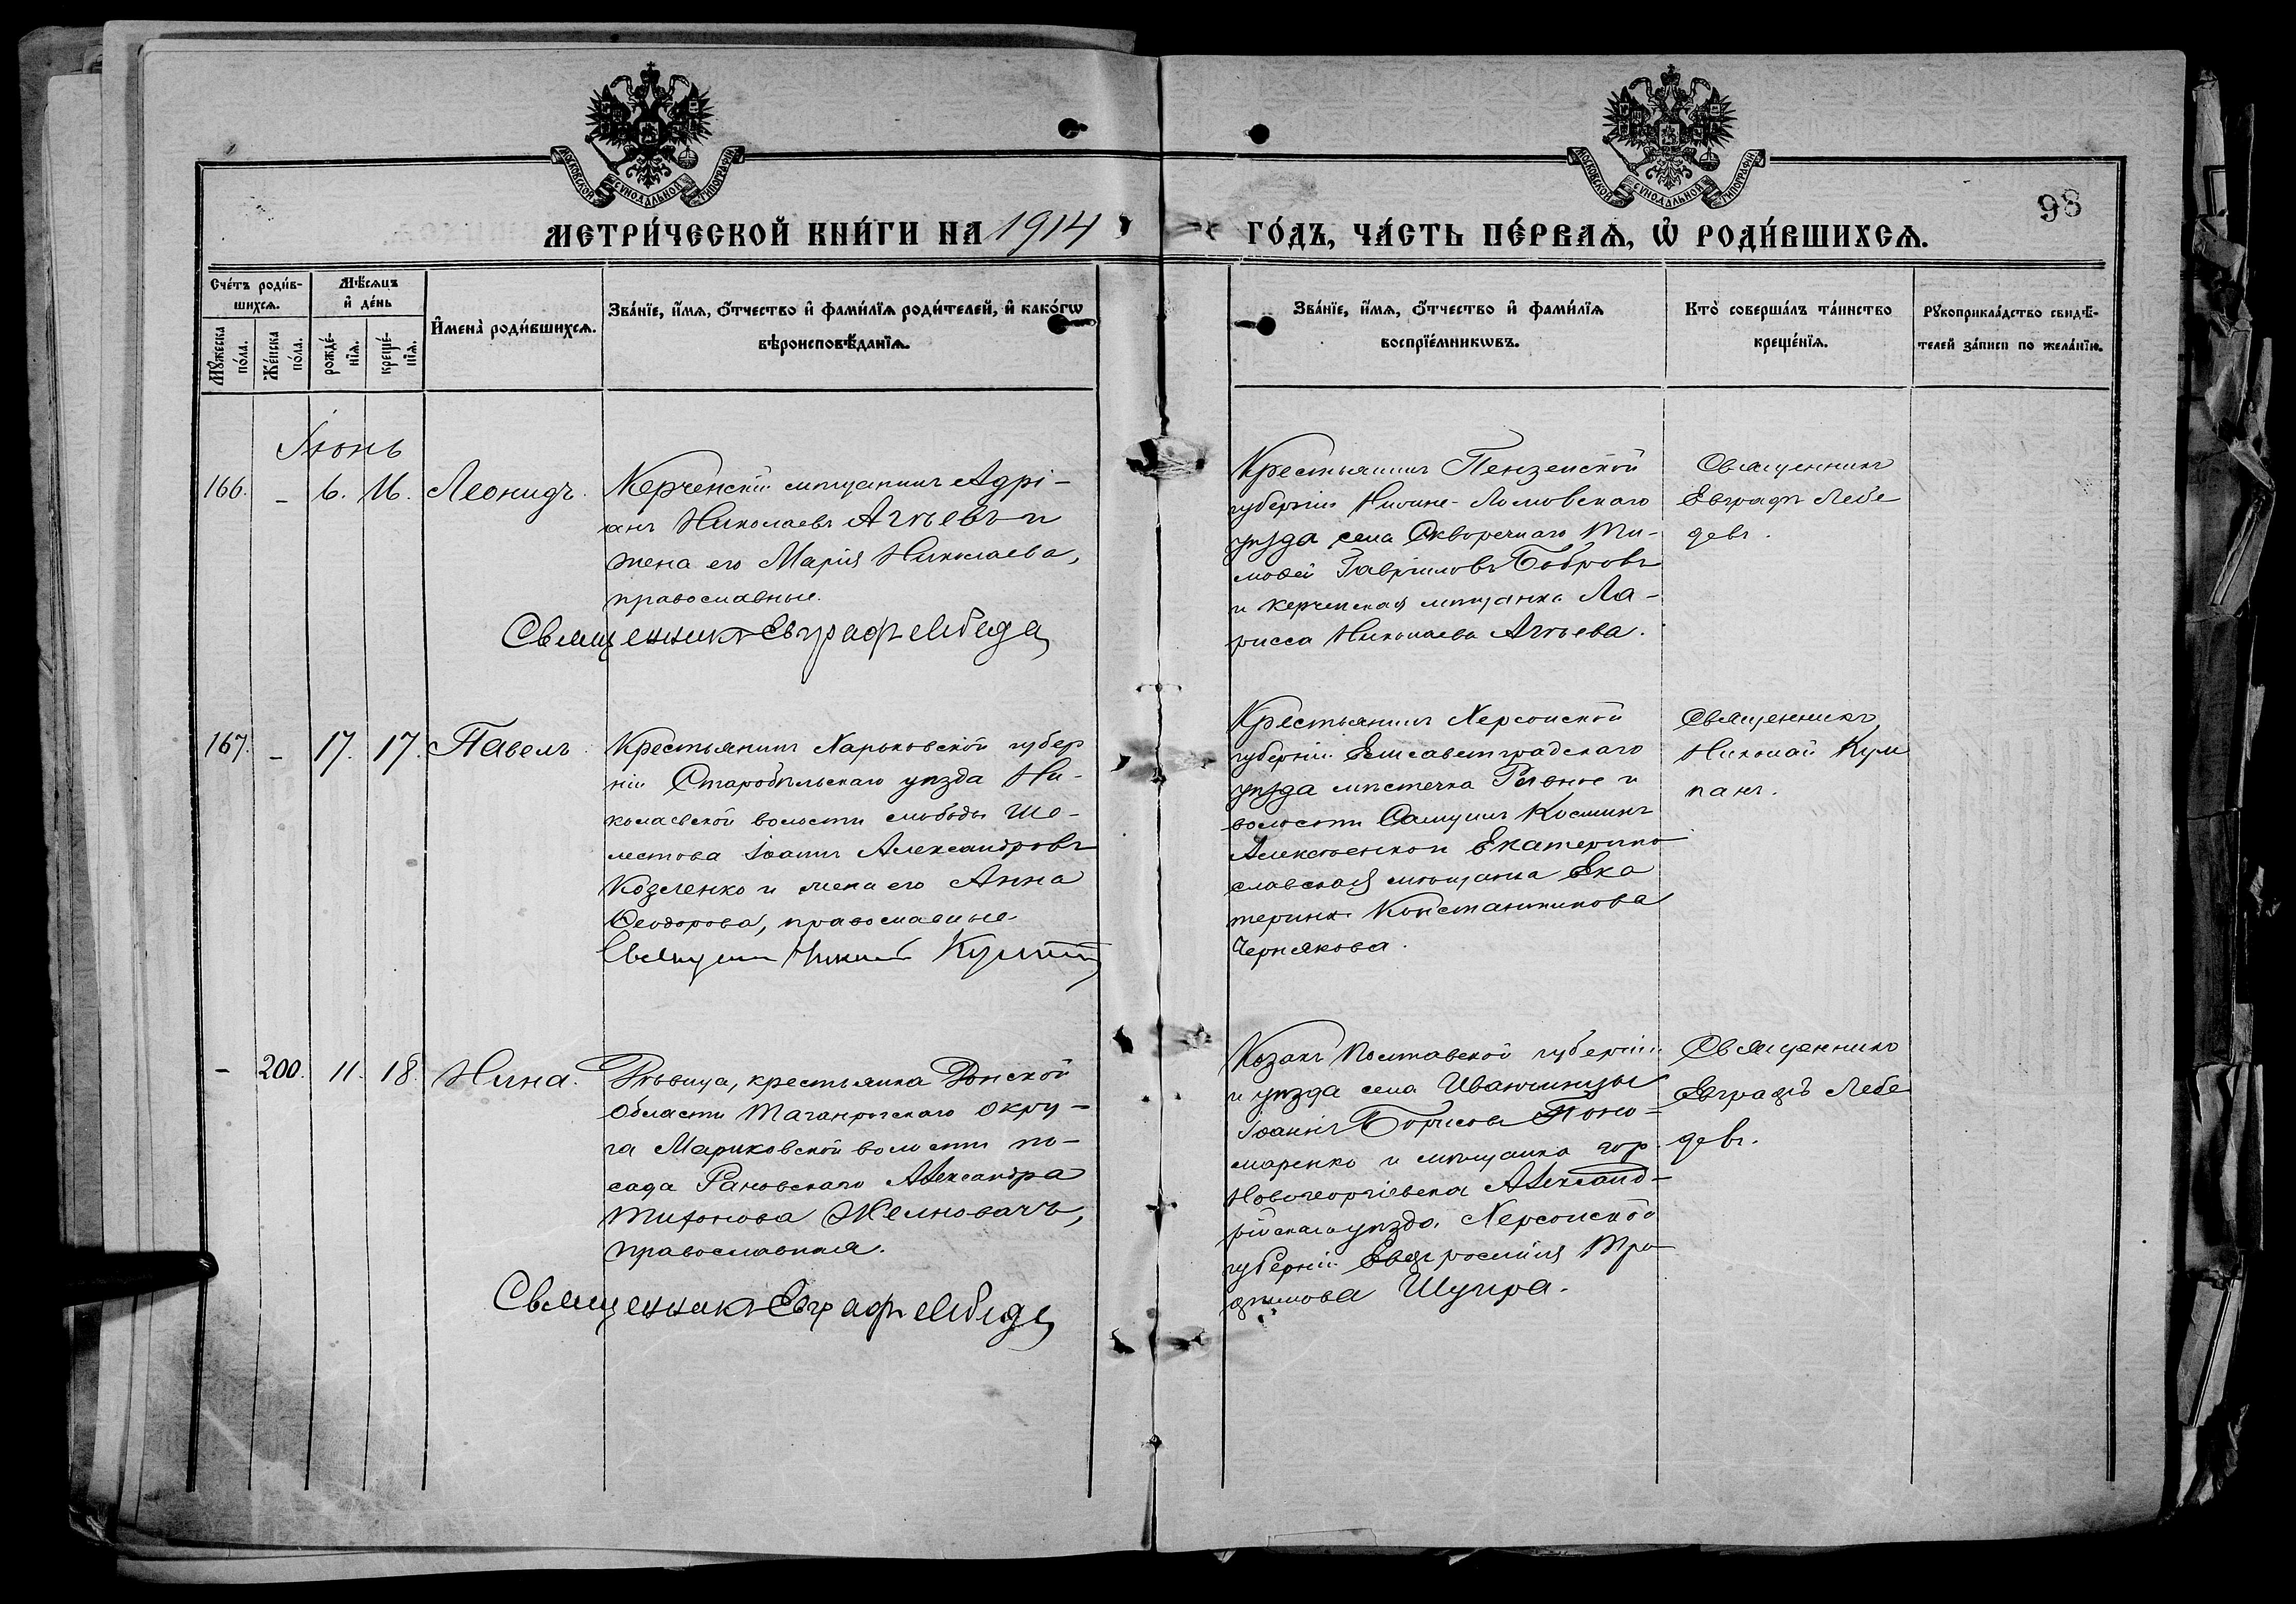 МОСКОВСКОЙ СѴНОДАЛЬНОЙ ТИПОГРАФІИ
МОСКОВСКОЙ СѴНОДАЛЬНОЙ ТИПОГРАФІИ
98
МЕТРИ́ЧЕСКОЙ КНИ́ГИ НА 1914
ГО́ДЪ, ЧА́СТЬ ПЕ́РВАѦ, Ѡ҆ РОДИ́ВШИХСѦ.
Сче́тъ роди́в-
шихсѧ.
Мѣ́сѧцъ
и҆ де́нь
Мꙋ́жеска
по́ла.
Же́нска
по́ла.
рожде́-
нїѧ.
креще́-
нїѧ.
И҆мена̀ роди́вшихсѧ.
Зва́нїе, и҆́мѧ, ѻ҆́тчество и҆ фами́лїѧ роди́телей, и҆ како́гѡ
вѣроисповѣ́данїѧ.
Зва́нїе, и҆́мѧ, ѻ҆́тчество и҆ фами́лїѧ
воспрїе́мникѡвъ.
Кто̀ соверша́лъ та́инство
креще́нїѧ.
Рꙋкоприкла́дство свидѣ́-
телей за́писи по жела́нїю.
Іюнь
166. - 6. 16. Леонидъ.
Керченскій мѣщанинъ Адрі-
анъ Николаевъ Агѣевъ и
жена его Марія Николаева,
православные.
Священникъ Евграфъ Лебедев
Крестьянинъ Пензенской
губерніи Нижне-Ломовскаго
уѣзда села Скворечнаго Ти-
мофей Гавриловъ Бобровъ
и керченская мѣщанка Ла-
рисса Николаева Агѣева.
Священникъ
Евграфъ Лебе
девъ.
167. - 17. 17. Павелъ.
Крестьянинъ Харьковской губер
ніи Старобѣльскаго уѣзда Ни-
колаевской волости слободы Ше-
лестова Іоаннъ Александровъ
Козленко и жена его Анна
Ѳеодорова, православные.
Священникъ Николай
Крестьянинъ Херсонской
губерніи Елисаветградскаго
уѣзда мѣстечка Ровное и
волости Самуилъ Косминъ
Алексѣенко и Екатерино
славская мѣщанка Ека
терина Константинова
Чернякова.
Священникъ
Николай Кум
панъ.
- 200. 11. 18. Нина.
Дѣвица, крестьянка Донской
области Таганрогскаго окру-
га Мариковской волости по-
сада Рановскаго Александра
Тихонова
православная.
Священникъ Евграфъ Лебедев
Козакъ Полтавской губерніи
и уѣзда села Иванчинцы
Іоаннъ Борисовъ Поно-
маренко и мѣщанка гор.
Новогеоргіевска Александ-
рійскаго уѣзда, Херсонской
губерніи Евфросинія Тро
фимова Щупра.
Священникъ
Евграфъ Лебе
девъ.